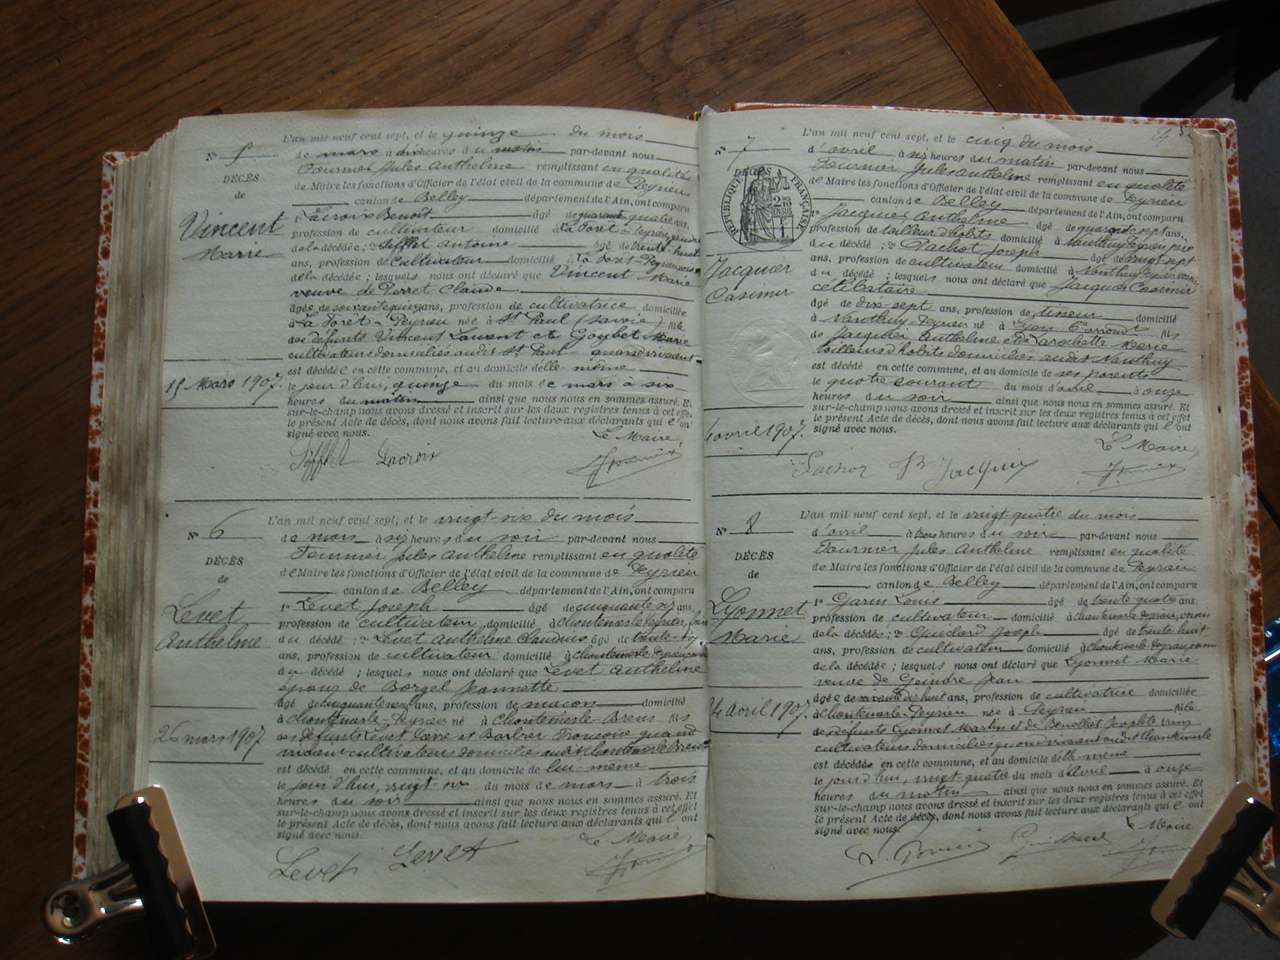 N° 5
DÉCÈS
de
Vincent
Marie
15 Mars 1907.
L'an mil neuf cent sept, et le quinze du mois
de mars à heures du matin par-devant nous
Fournier Jules Anthelme remplissant en qualité
de Maire les fonctions d'Officier de l'état civil de la commune de Peyrieu
canton de Belley département de l'Ain, ont comparu
1° Lacroix Benoît âgé de quarante quatre ans,
profession de cultivateur domicilié à La Forêt-Peyrieu
de la décédée; 2° Sifflet Antoine âgé de trente huit
ans, profession de cultivateur domicilié à la Forêt Peyrieu
de la décédée; lesquels nous ont déclaré que Vincent Marie
veuve de Perret Claude
âgée de soixante quinze ans, profession de cultivatrice domiciliée
à La Forêt-Peyrieu née à St Paul (Savoie) fille
des défunts Vincent Laurent et de Goubet Marie
cultivateurs domiciliés audit St Paul quand vivaient
est décédée en cette commune, et au domicile d'elle même
le jour d'hui, quinze du mois de mars à six
heures du matin ainsi que nous nous en sommes assuré. Et
sur-le-champ nous avons dressé et inscrit sur les deux registres tenus à cet effet
le présent Acte de décès, dont nous avons fait lecture aux déclarants qui l'ont
signé avec nous.
Le Maire,
Sifflet Lacroix
N° 6
DÉCÈS
de
Levet
Anthelme
26 mars 1907
L'an mil neuf cent sept, et le vingt-six du mois
de mars à six heures du soir par-devant nous
Fournier Jules Anthelme remplissant en qualité
de Maire les fonctions d'Officier de l'état civil de la commune de Peyrieu
canton de Belley département de l'Ain, ont comparu
1° Levet Joseph âgé de cinquante ans,
profession de cultivateur domicilié à Chantemerle Peyrieu
du décédé; 2° Levet Anthelme Claudius âgé de trente
ans, profession de cultivateur domicilié à Chantemerle Peyrieu
du décédé; lesquels nous ont déclaré que Levet Anthelme
époux de Borgel Jeannette
âgé de cinquante ans, profession de maçon domicilié
à Chantemerle-Peyrieu né à Chantemerle-Brens fils
des défunts Levet et Barbier Françoise quand
vivaient cultivateurs domiciliés audit Chantemerle Brens
est décédé en cette commune, et au domicile de lui-même
le jour d'hui, vingt six du mois de mars à trois
heures du soir ainsi que nous nous en sommes assuré. Et
sur-le-champ nous avons dressé et inscrit sur les deux registres tenus à cet effet
le présent Acte de décès, dont nous avons fait lecture aux déclarants qui l'ont
signé avec nous.
Le Maire,
Levet Levet
N° 7
DÉCÈS
RÉPUBLIQUE FRANÇAISE
Jacquier
Casimir
4 avril 1907.
L'an mil neuf cent sept, et le cinq du mois
d'avril à six heures du matin par-devant nous
Fournier Jules Anthelme remplissant en qualité
de Maire les fonctions d'Officier de l'état civil de la commune de Peyrieu
canton de Belley département de l'Ain, ont comparu
1° Jacquier Anthelme âgé de quarante sept ans,
profession de tailleur d'habits domicilié à Nanthuy Peyrieu père
du décédé; 2° Pachot Joseph âgé de vingt sept
ans, profession de cultivateur domicilié à Nanthuy Peyrieu
du décédé; lesquels nous ont déclaré que Jacquier Casimir
célibataire
âgé de dix-sept ans, profession de tisseur domicilié
à Nanthuy-Peyrieu né à Lyon fils
de Jacquier Anthelme et de Larochette Marie
tailleurs d'habits domiciliés audit Nanthuy
est décédé en cette commune, et au domicile de ses parents
le quatre courant du mois d'avril à onze
heures du soir ainsi que nous nous en sommes assuré. Et
sur-le-champ nous avons dressé et inscrit sur les deux registres tenus à cet effet
le présent Acte de décès, dont nous avons fait lecture aux déclarants qui l'ont
signé avec nous.
Le Maire,
Pachot Jacquier
N° 8
DÉCÈS
de
Lyonnet
Marie
24 avril 1907.
L'an mil neuf cent sept, et le vingt-quatre du mois
d'avril à trois heures du soir par-devant nous
Fournier Jules Anthelme remplissant en qualité
de Maire les fonctions d'Officier de l'état civil de la commune de Peyrieu
canton de Belley département de l'Ain, ont comparu
1° Garin Louis âgé de trente quatre ans,
profession de cultivateur domicilié à Chantemerle Peyrieu
de la décédée; 2° Joseph âgé de trente huit
ans, profession de cultivateur domicilié à Chantemerle Peyrieu
de la décédée; lesquels nous ont déclaré que Lyonnet Marie
veuve de Geindre Jean
âgée de huit ans, profession de cultivatrice domiciliée
à Chantemerle-Peyrieu née à Peyrieu fille
de défunts Lyonnet Martin et de
cultivateurs domiciliés quand vivaient audit Chantemerle
est décédée en cette commune, et au domicile d'elle-même
le jour d'hui, vingt quatre du mois d'avril à onze
heures du matin ainsi que nous nous en sommes assuré. Et
sur-le-champ nous avons dressé et inscrit sur les deux registres tenus à cet effet
le présent Acte de décès, dont nous avons fait lecture aux déclarants qui l'ont
signé avec nous.
Le Maire